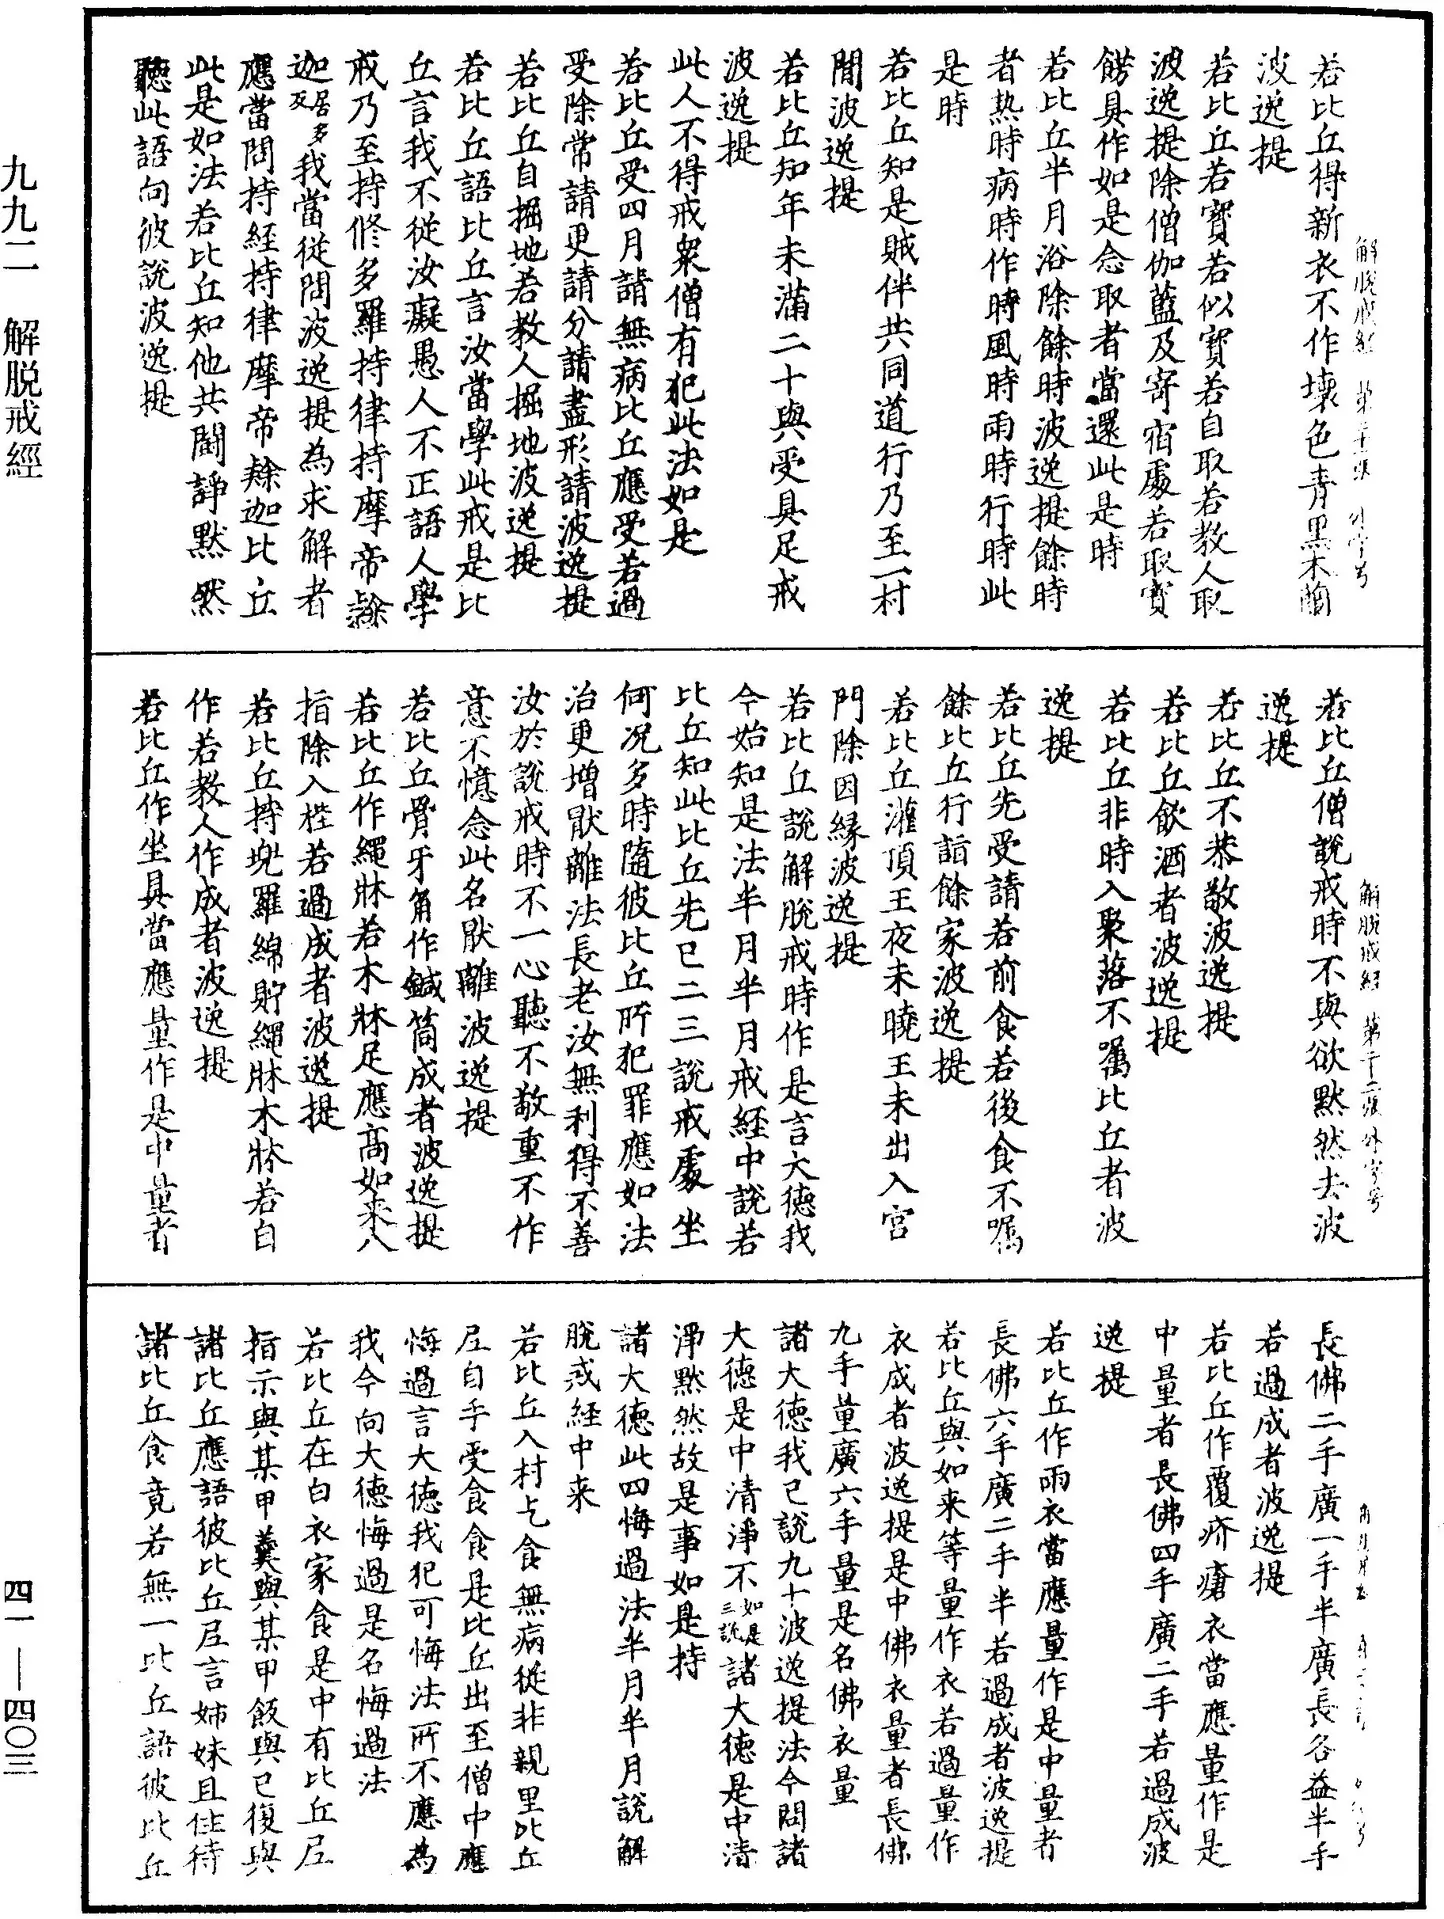 若比丘得新衣不作壞色青黑木蘭
波逸提
若比丘若寶若似寶若自取若教人取
波逸提除僧伽藍及寄宿處若取寶
餝具作如是念取者當還此是時
若比丘半月浴除餘時波逸提餘時
者熱時病時作時風時雨時行時此
是時
若比丘知是賊伴共同道行乃至一村
間波逸提
若比丘知年未滿二十與受具足戒
波逸提
此人不得戒衆僧有犯此法如是
若比丘受四月請無病比丘應受若過
受除常請更請分請盡形請波逸提
若比丘自掘地若教人掘地波逸提
若比丘語比丘言汝當學此戒是比
丘言我不從汝癡愚人不正語人學
戒乃至持修多羅持律持摩帝𨽻
迦居多反我當從問波逸提為求解者
應當問持經持律摩帝𨽻迦比丘
此是如法若比丘知他共鬪諍默然
聽此語向彼說波逸提
解脫戒經 第二十一張 外字号
若比丘僧說戒時不與欲默然去波
逸提
若比丘不恭敬波逸提
若比丘飲酒者波逸提
若比丘非時入聚落不囑比丘者波
逸提
若比丘先受請若前食若後食不囑
餘比丘行詣餘家波逸提
若比丘灌頂王夜未曉王未出入宮
門除因緣波逸提
若比丘說解脫戒時作是言大德我
今始知是法半月半月戒經中說若
比丘知此比丘先已二三說戒處坐
何況多時隨彼比丘所犯罪應如法
治更增厭離法長老汝無利得不善
汝於說戒時不一心聽不敬重不作
意不憶念此名厭離波逸提
若比丘骨牙角作鍼筒成者波逸提
若比丘作繩牀若木牀足應高如来八
指除入桄若過成者波逸提
若比丘持兜羅綿貯繩牀木牀若自
作若教人作成者波逸提
若比丘作坐具當應量作是中量者
解脫戒經 第二十二張 外字号
長佛二手廣一手半廣長各益半手
若過成者波逸提
若比丘作覆疥瘡衣當應量作是
中量者長佛四手廣二手若過成波
逸提
若比丘作雨衣當應量作是中量者
長佛六手廣二手半若過成者波逸提
若比丘與如来等量作衣若過量作
衣成者波逸提是中佛衣量者長佛
九手量廣六手量是名佛衣量
諸大德我已說九十波逸提法今問諸
大德是中清淨不如是三說諸大德是中清
淨默然故是事如是持
諸大德此四悔過法半月半月說解
脫戒經中来
若比丘入村乞食無病從非親里比丘
尼自手受食食是比丘出至僧中應
悔過言大德我犯可悔法所不應為
我今向大德悔過是名悔過法
若比丘在白衣家食是中有比丘尼
指示與某甲羹與某甲飯與已復與
諸比丘應語彼比丘尼言姊妹且住待
諸比丘食竟若無一比丘語彼比丘
九九二 解脫戒經
四一——四〇三